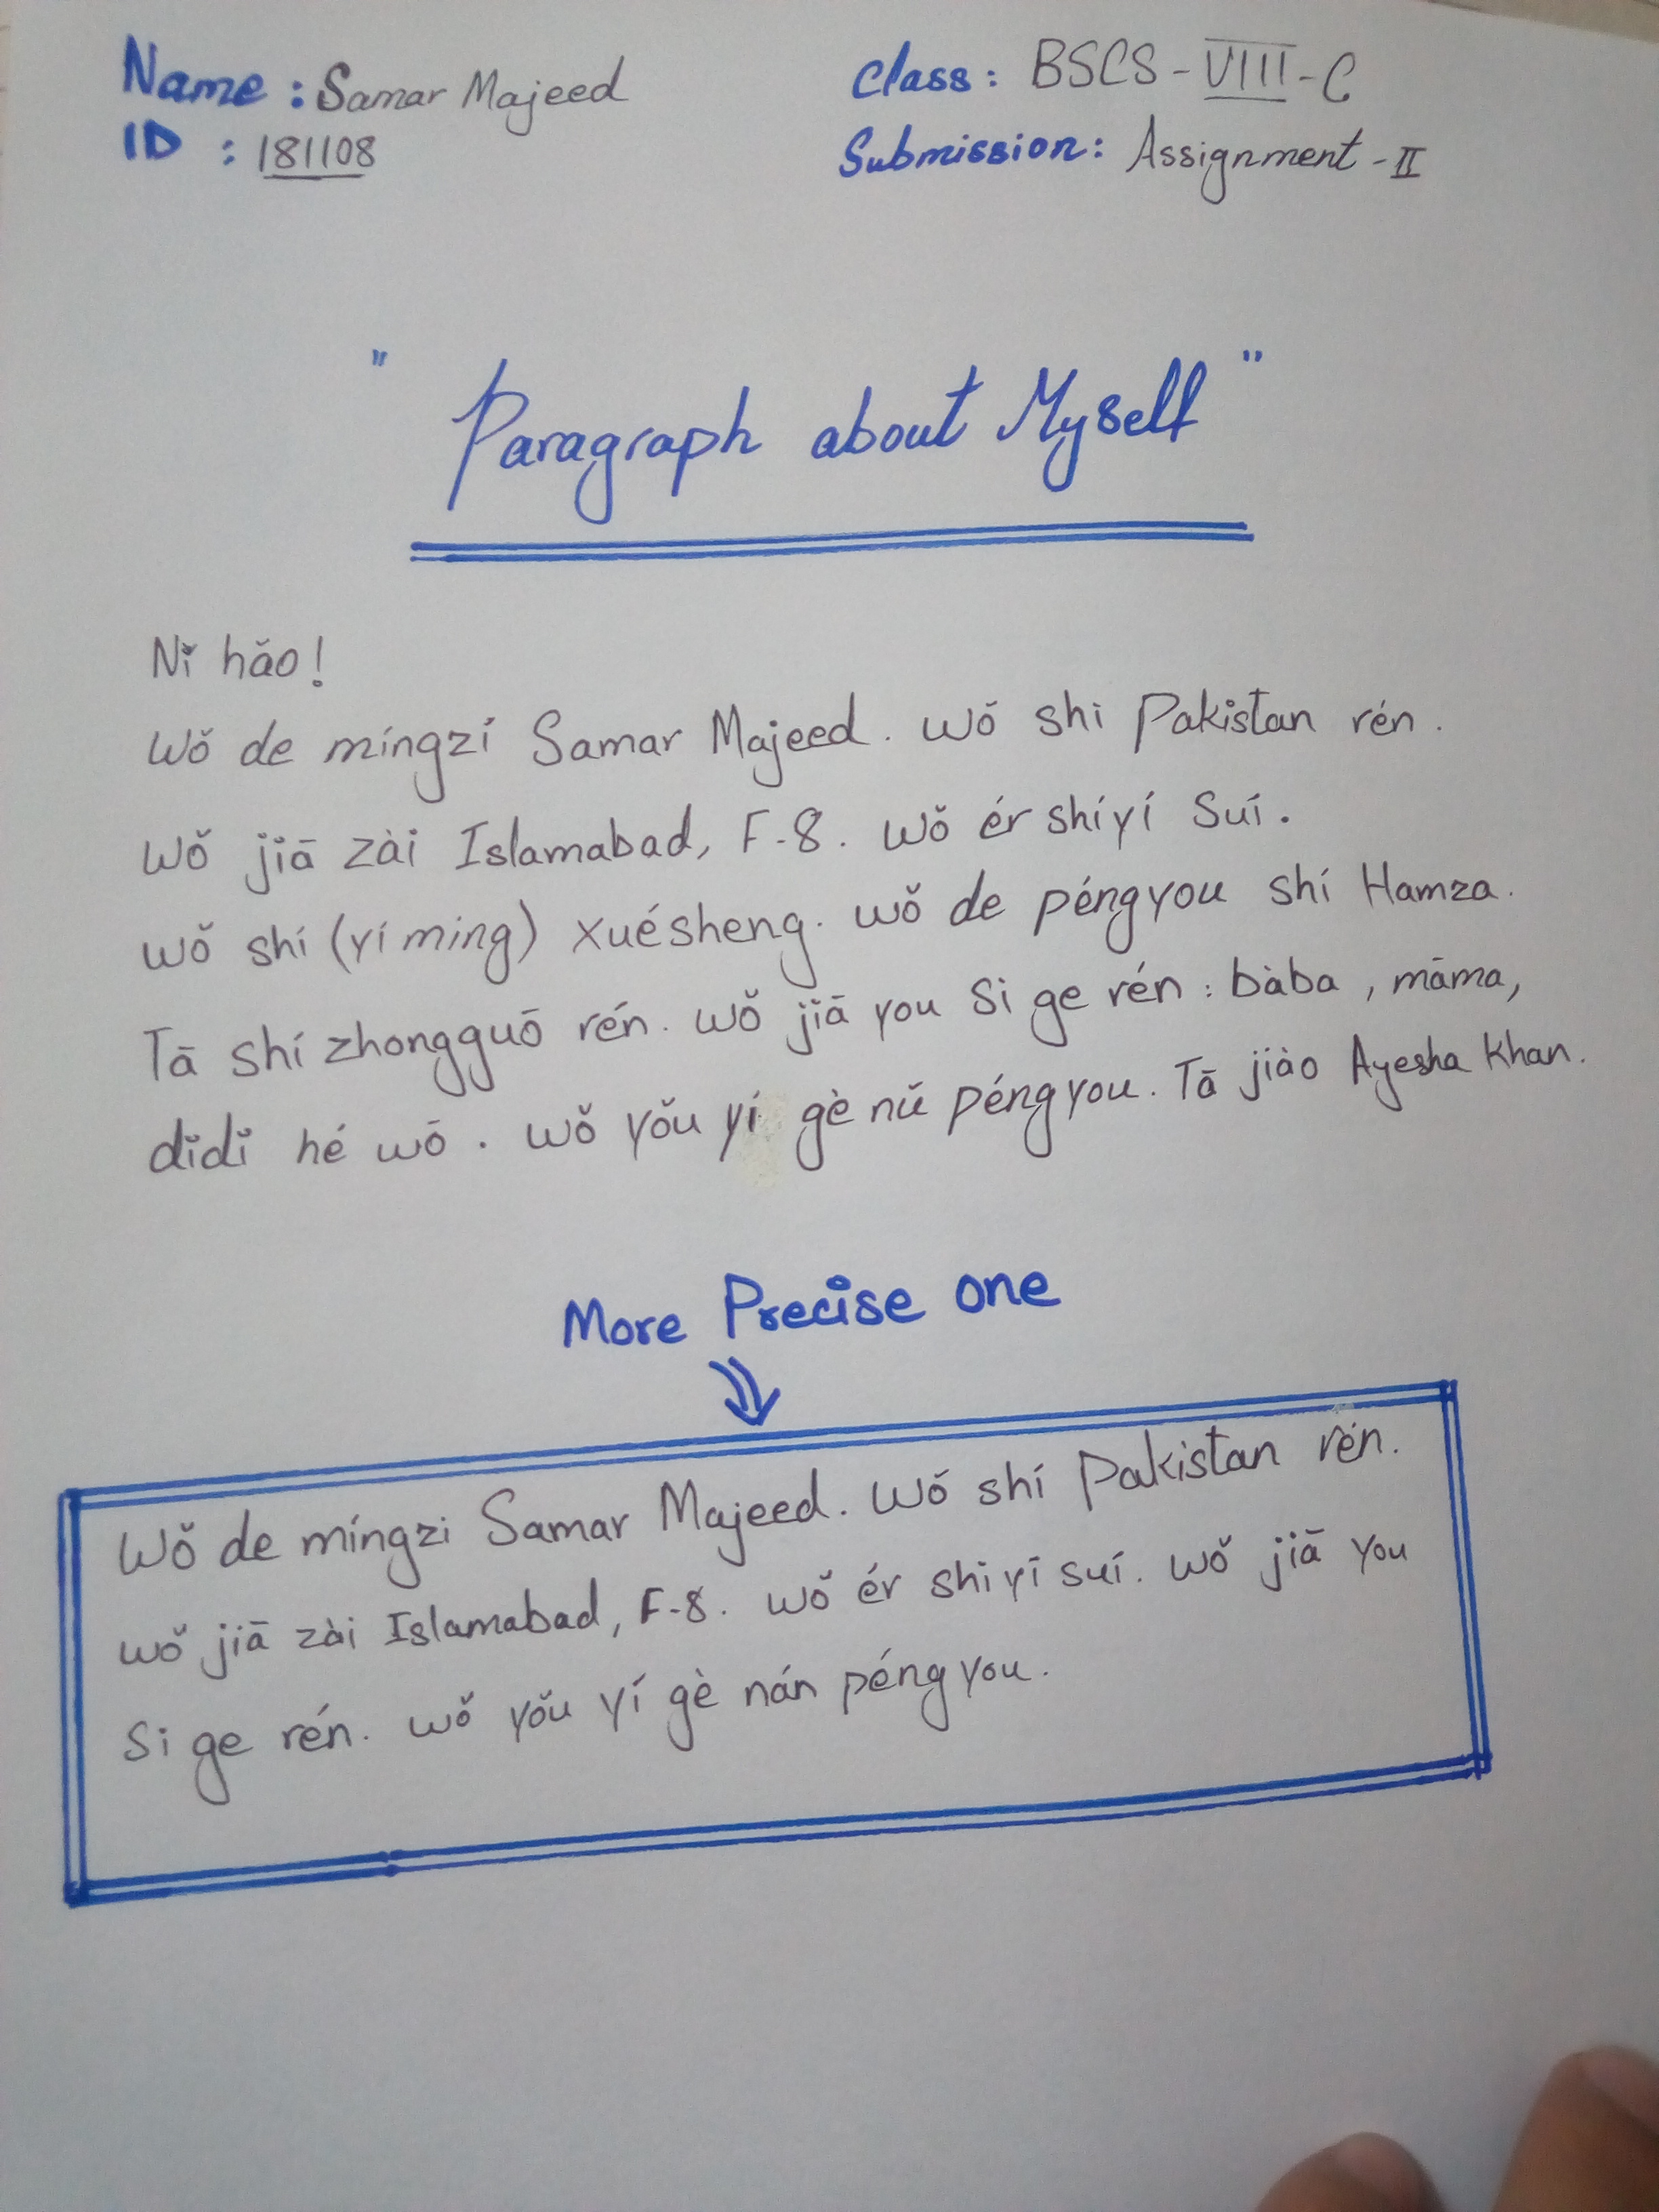 Name : Samar Majeed
Class : BSCS - VIII - C
ID : 181108
Submission : Assignment - II
" Paragraph about Myself "
Nǐ hǎo!
Wǒ de míngzí Samar Majeed. Wǒ shì Pakistan rén.
Wǒ jiā zài Islamabad, F-8. Wǒ ér shíyí Suí.
Wǒ shí (yí míng) xuésheng. Wǒ de péngyou shí Hamza.
Tā shí zhongguō rén. Wǒ jiā you Si ge rén : bàba, māma,
dǐdǐ hé wō. Wǒ yǒu yí gè nǚ péngyou. Tā jiào Ayesha Khan.
More Precise one
Wǒ de míngzi Samar Majeed. Wǒ shí Pakistan rén.
Wǒ jiā zài Islamabad, F-8. Wǒ ér shiyī suí. Wǒ jiā you
Si ge rén. Wǒ yǒu yí gè nán péngyou.